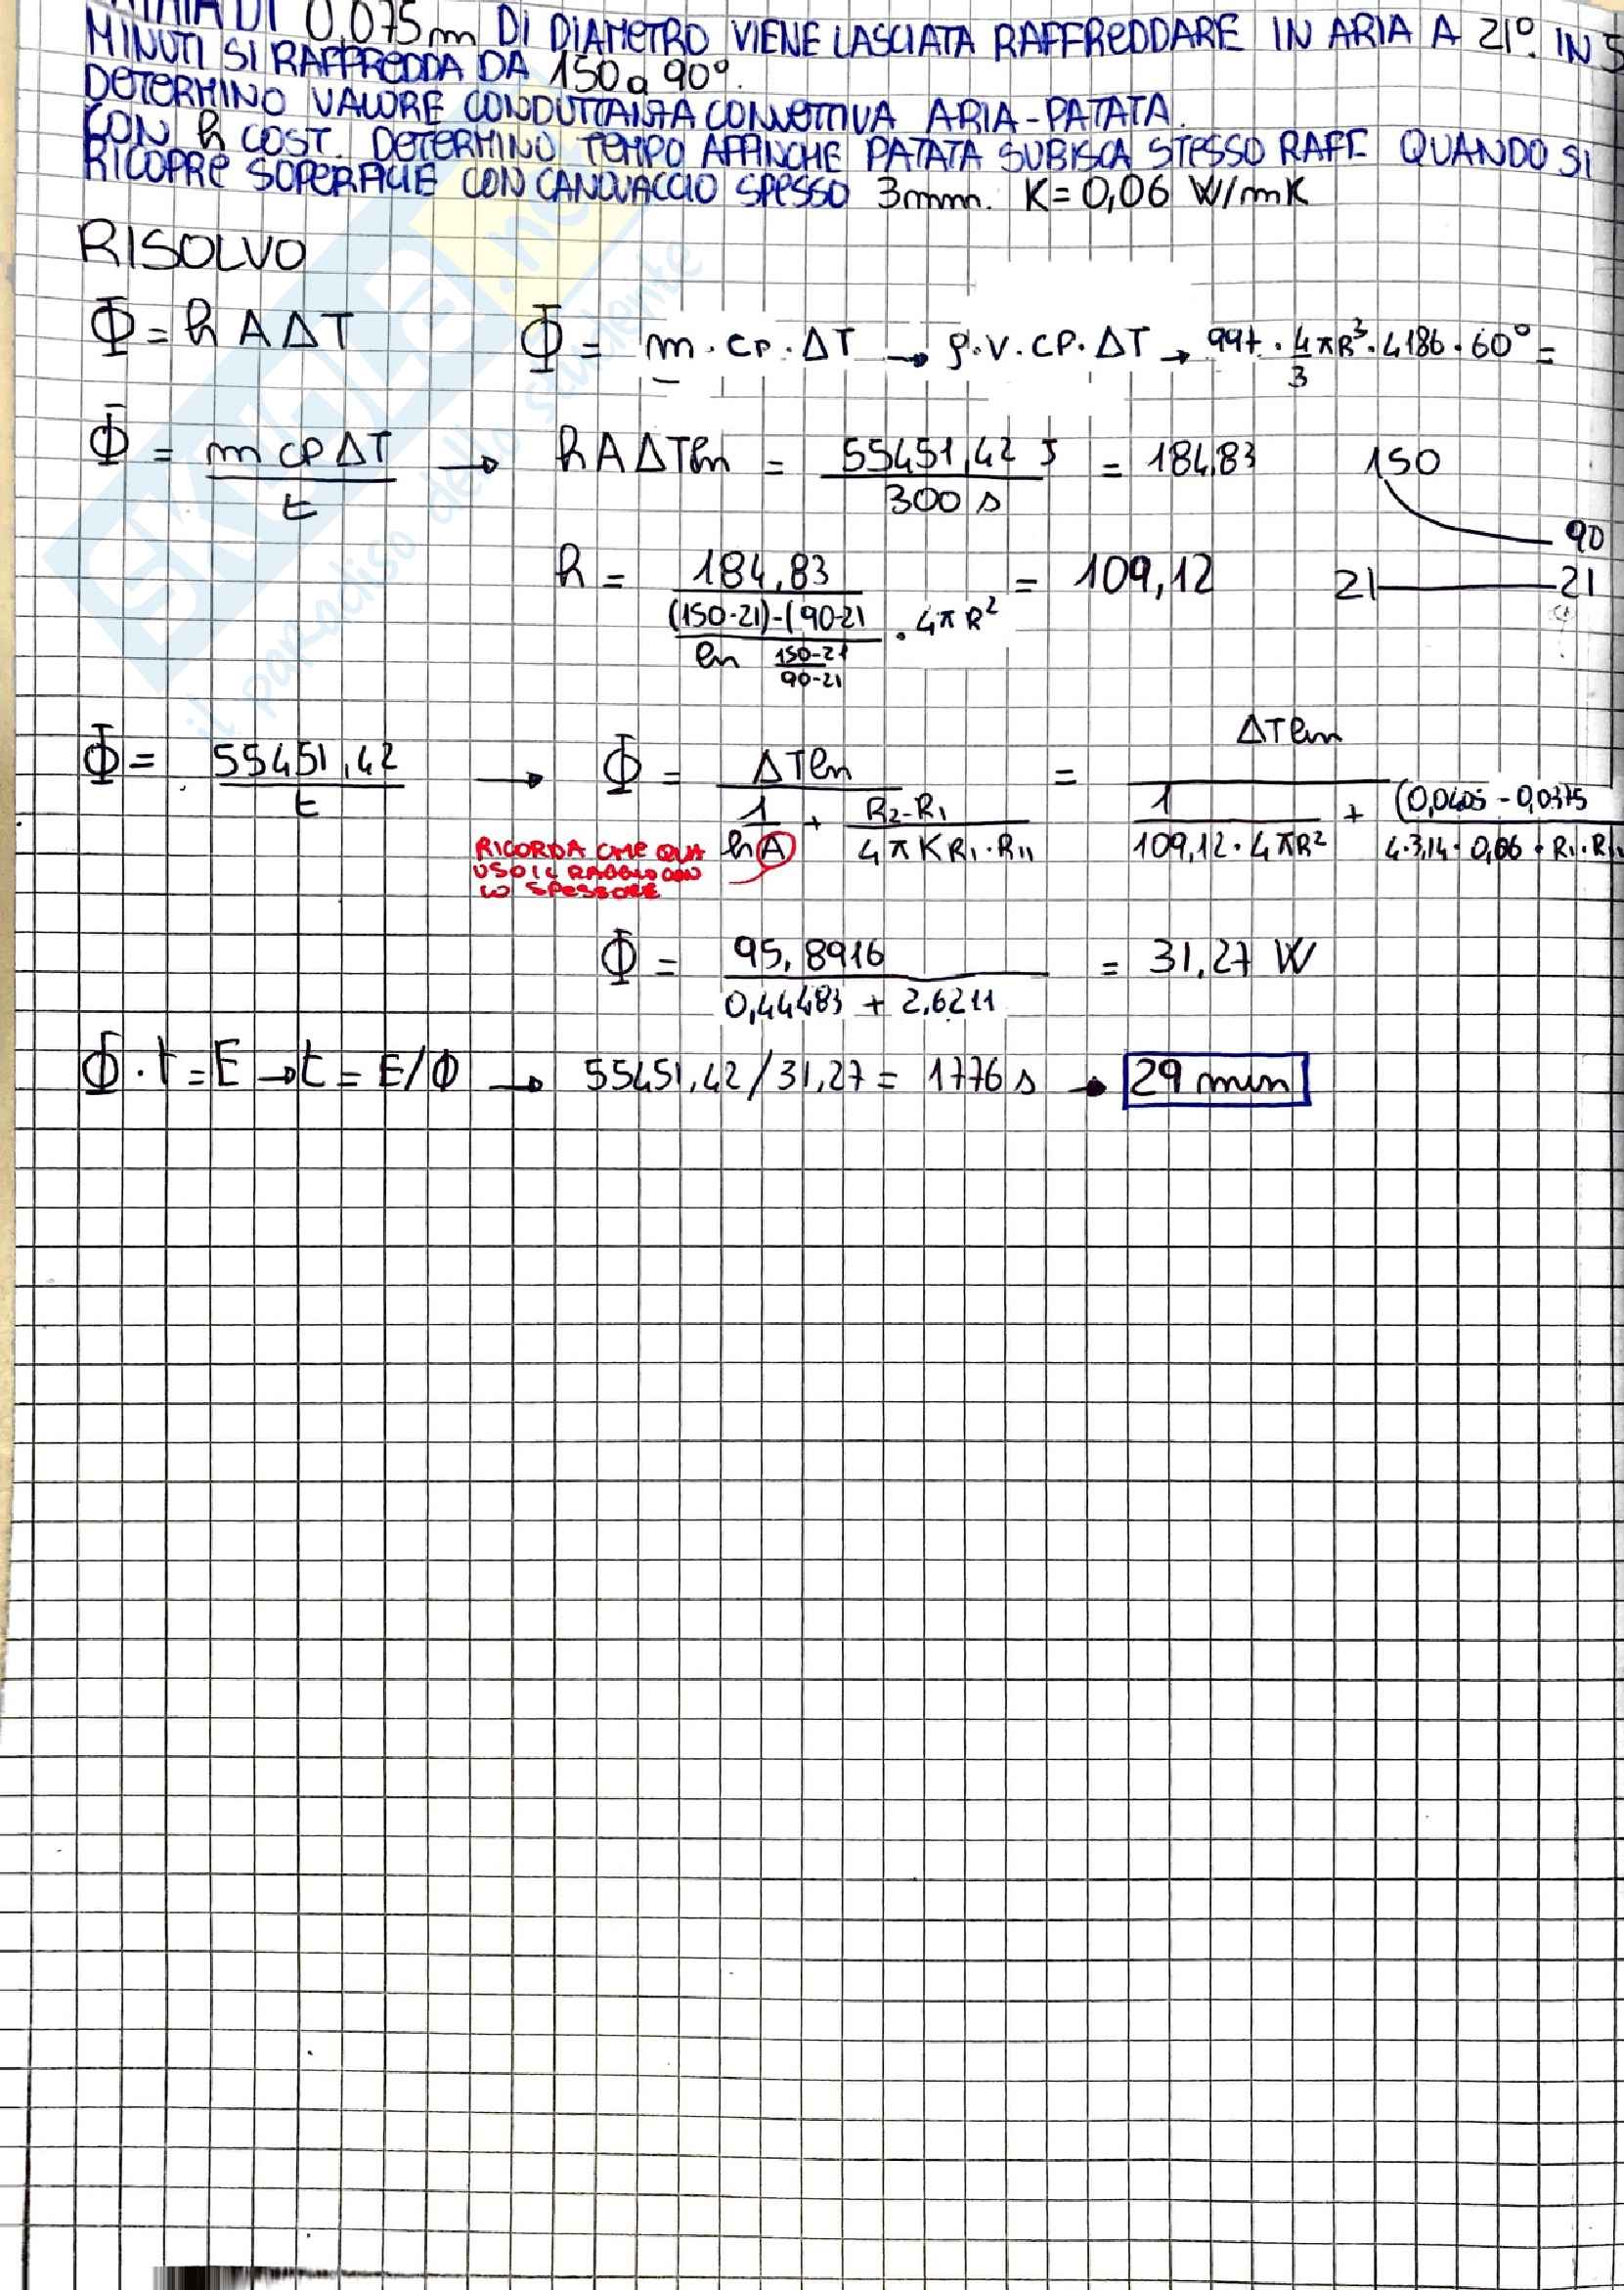 PATATA DI 0,075m DI DIAMETRO VIENE LASCIATA RAFFREDDARE IN ARIA A 21°. IN 5
MINUTI SI RAFFREDDA DA 150 a 90°.
DETERMINO VALORE CONDUTTANZA CONVETTIVA ARIA-PATATA.
CON h COST. DETERMINO TEMPO AFFINCHE PATATA SUBISCA STESSO RAFF. QUANDO SI
RICOPRE SUPERFICIE CON CANOVACCIO SPESSO 3mm. K=0,06 W/mK
RISOLVO
Φ = h A ΔT Φ = m · cp · ΔT → ρ·V·CP·ΔT → 997 · 4/3 πR³ · 4186 · 60° =
Φ = m cp ΔT / t → h A ΔTln = 55451,42 J / 300 s = 184,83 150
90
h = 184,83 / ((150-21)-(90-21 / ln 150-21 / 90-21) · 4πR² = 109,12 21 21
Φ = 55451,42 / t → Φ = ΔTln / (1 / hA + R2-R1 / 4πKR1·R11) = ΔTlm / (1 / 109,12·4πR² + (0,0405-0,0375 / 4·3,14·0,06·R1·R11
RICORDA CHE QUA
USO IL RAGGIO CON
LO SPESSORE
Φ = 95,8916 / 0,44483 + 2,6211 = 31,27 W
Φ·t = E → t = E/Φ → 55451,42/31,27 = 1776 s → 29 min
SKUOLA.net
il paradiso dello studente